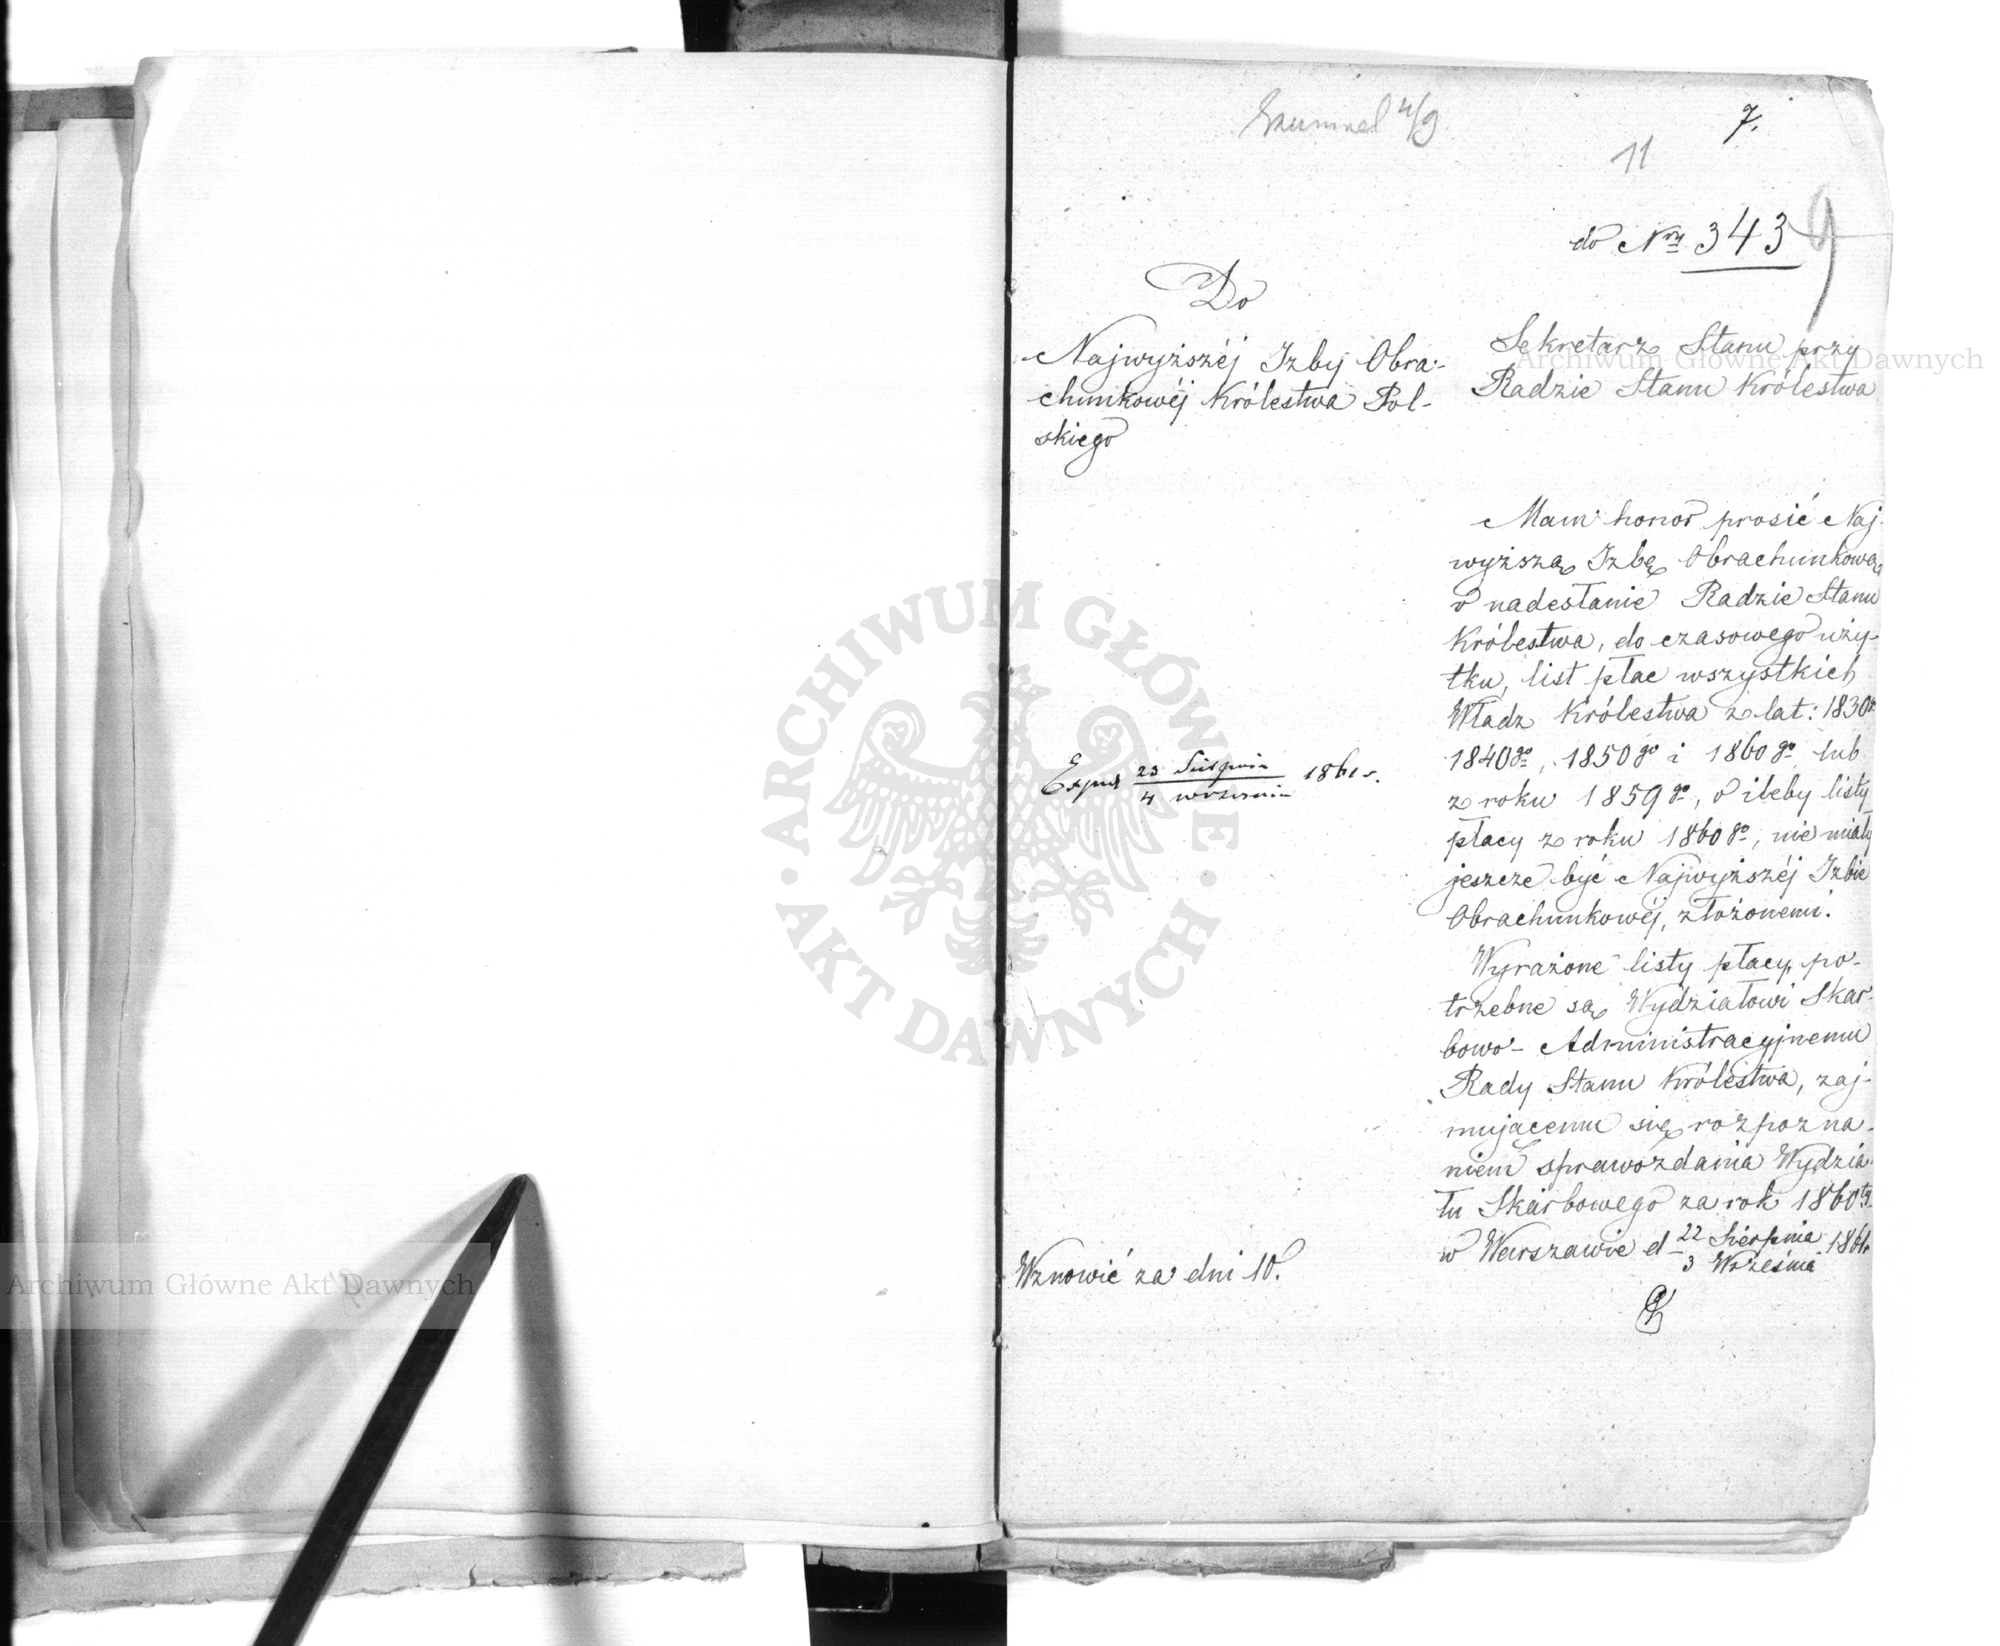 4/9
7.
11
do Nru 343
9
Do
Najwyższéj Izby Obra-
chunkowéj Królestwa Pol-
skiego
Sekretarz Stanu przy
Radzie Stanu Królestwa
Mam honor prosić Naj-
wyższą Izbę Obrachunkową
o nadesłanie Radzie Stanu
Królestwa, do czasowego uży-
tku, list płac wszystkich
Władz Królestwa z lat: 1830go
1840go, 1850go i 1860go lub
z roku 1859go, o ileby listy
płacy z roku 1860go, nie miały
jeszcze być Najwyższéj Izbie
Obrachunkowéj, złożonemi.
Wyrażone listy płacy, po-
trzebne są Wydziałowi Skar-
bowo-Administracyjnemu
Rady Stanu Królestwa, zaj-
mującemu się rozpozna-
niem sprawozdania Wydzia-
łu Skarbowego za rok 1860ty
w Warszawie d 22 Sierpnia / 3 Września 1861r
Exped 23 Sierpnia / 4 września 1861 r.
Wznowić za dni 10.
ARCHIWUM GŁÓWNE
AKT DAWNYCH
Archiwum Główne Akt Dawnych
Archiwum Główne Akt Dawnych